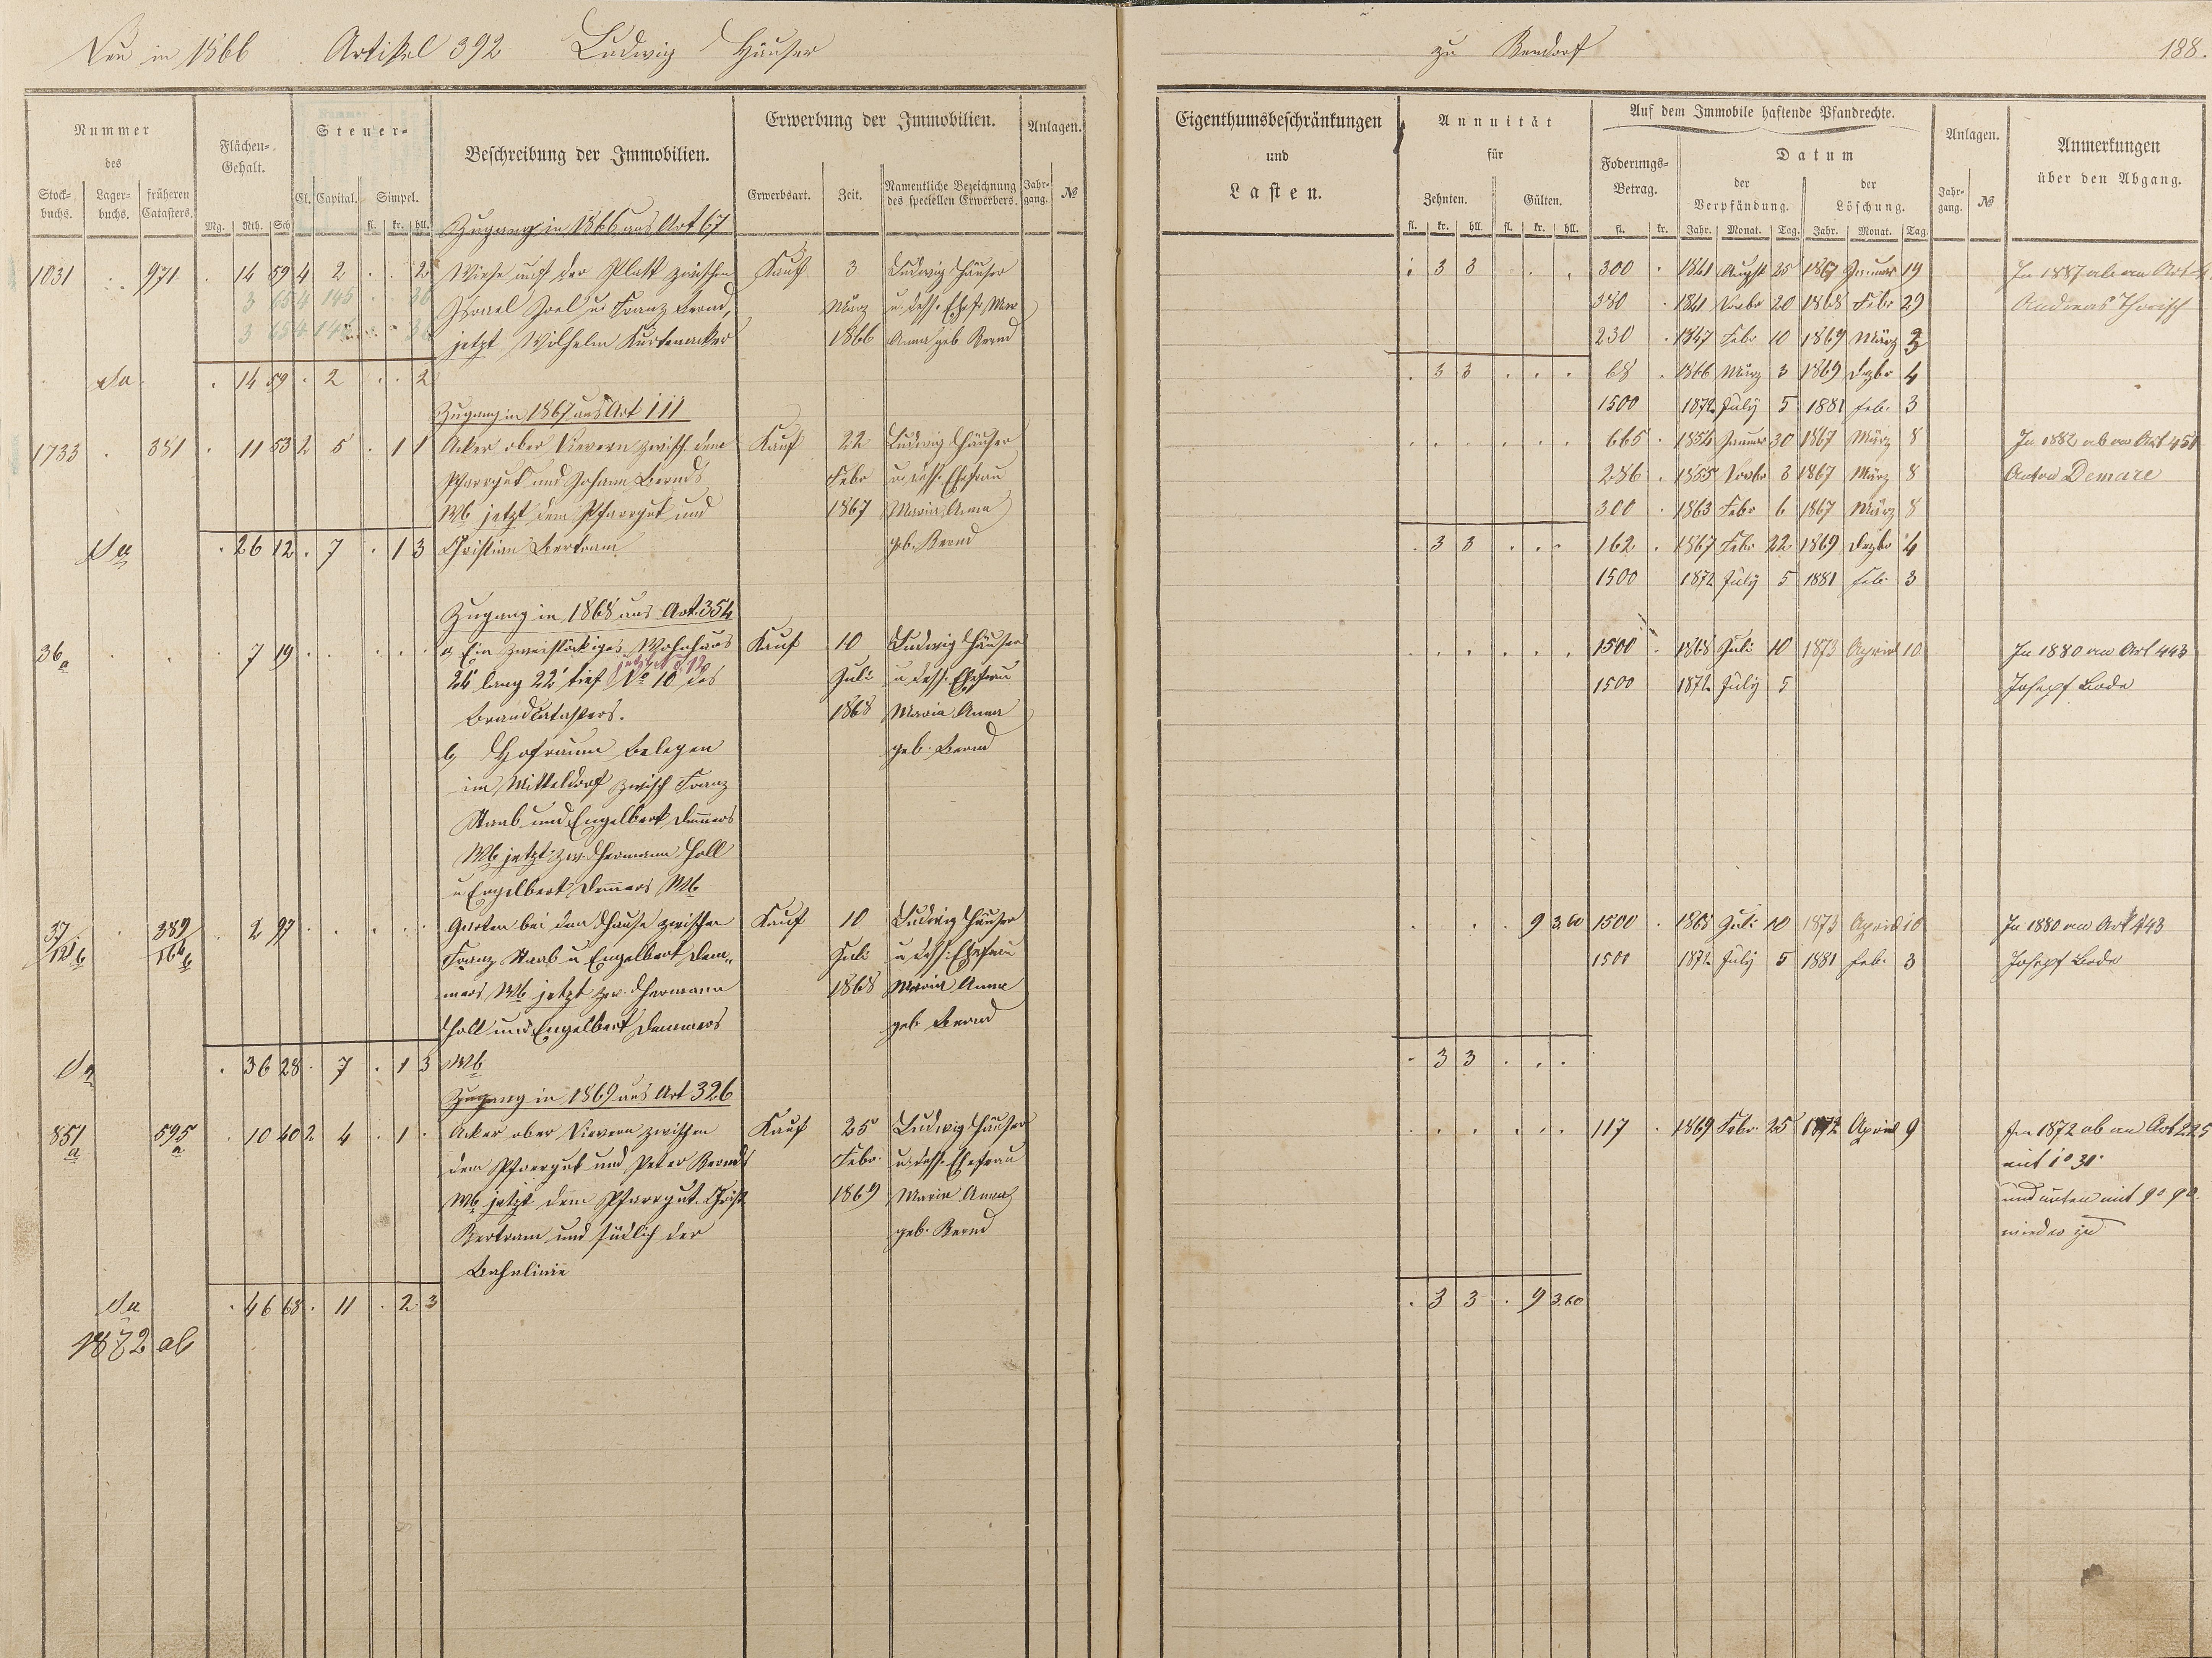 Neu in 1866 Artikel 392 Ludwig Häuser
Nummer
des
Stock-buchs.
Lager-buchs.
früheren Catasters.
Flächen-Gehalt.
Mg. Rth. Sch
Steuer-
Cl. Capital. Simpel.
fl. kr. hll.
Beschreibung der Immobilien.
Erwerbung der Immobilien.
Erwerbsart. Zeit. Namentliche Bezeichnung des speciellen Erwerbers.
Anlagen.
Jahr-gang. №
Zugang in 1866 aus Art 67
1031 971 14 59 4 2 2 Wiese auf der Platt zwischen Kauf 3 Ludwig Häuser
Israel Joel u Franz Bernd, März u. dess. Ehefr. Mar
jetzt Wilhelm Kurtenacker 1866 Anna geb Bernd
Sa 14 59 2 2
Zugang in 1867 aus Art 111
1733 381 11 53 2 5 1 1 Acker ober Vievern zwisch. dem Kauf 22 Ludwig Häuser
Pfarrgut und Johann Bernds Febr u. dess. Ehefrau
Wb jetzt dem Pfarrgut und 1867 Maria Anna
Sa 26 12 7 1 3 Christian Bertram geb. Bernd
Zugang in 1868 aus Art. 354
36a 7 19 a, Ein zweistöckiges Wohnhaus Kauf 10 Ludwig Häuser
jetzt N. 12
26' lang 22' tief No 10 des Juli u dess. Ehefrau
Brandcatasters. 1868 Maria Anna
b, Hofraum belegen geb. Bernd
im Mitteldorf zwisch Franz
Staab und Engelbert Demers
Wb jetzt zw. Hermann Holl
u Engelbert Demers Wb
37/12 b 389/166 b 2 97 Garten bei dem Hause zwischen Kauf 10 Ludwig Häuser
Franz Staab u Engelbert Dem- Juli u dess. Ehefrau
mers Wb jetzt zw. Hermann 1868 Maria Anna
Holl und Engelbert Demmers geb Bernd
Sa 36 28 7 1 3 Wb
Zugang in 1869 aus Art 326
851 a 595 a 10 40 2 4 1 Acker ober Vievern zwischen Kauf 25 Ludwig Häuser
dem Pfarrgut und Peter Bernds Febr. u. dess. Ehefrau
Wb jetzt dem Pfarrgut. Christ 1869 Maria Anna
Bertram und südlich der geb. Bernd
Bahnlinie
Sa 46 68 11 2 3
1872 ab
zu Bendorf 188.
Eigenthumsbeschränkungen
und
Lasten.
Annuität
für
Zehnten. Gülten.
fl. kr. hll. fl. kr. hll.
Auf dem Immobile haftende Pfandrechte.
Foderungs-Betrag.
fl. kr.
Datum
der Verpfändung. der Löschung.
Jahr. Monat. Tag. Jahr. Monat. Tag.
Anlagen.
Jahr-gang. №
Anmerkungen
über den Abgang.
3 3 300 1841 Augst 25 1867 Januar 19 In 1887 ab an Art
380 1841 Novbr 20 1868 Febr 29 Andreas
230 1847 Febr 10 1869 März 3
3 3 68 1866 März 3 1869 Dezbr 4
1500 1872 July 5 1881 Feb. 3
665 1854 Januar 30 1867 März 8 In 1882 ab an Art 451
286 1855 Novbr 3 1867 März 8 Anton Demare
300 1863 Febr 6 1867 März 8
3 3 162 1867 Febr 22 1869 Dezbr 4
1500 1872 July 5 1881 Feb. 3
1500 1868 Juli 10 1873 April 10 In 1880 an Art 443
1500 1872 July 5 Josepf Bode
9 3.60 1500 1868 Juli 10 1873 April 10 In 1880 an Art 443
1500 1872 July 5 1881 Feb. 3 Josepf Bode
3 3
117 1869 Febr. 25 1872 April 9 In 1872 ab an Art 225
mit 1° 31'
und unten mit 9° 9
wieder zu
3 3 9 3.60